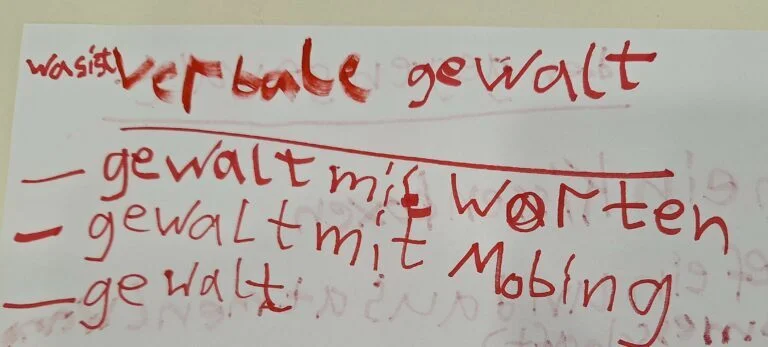 was ist verbale gewalt
— gewalt mit worten
- gewalt mit Mobing
— gewalt